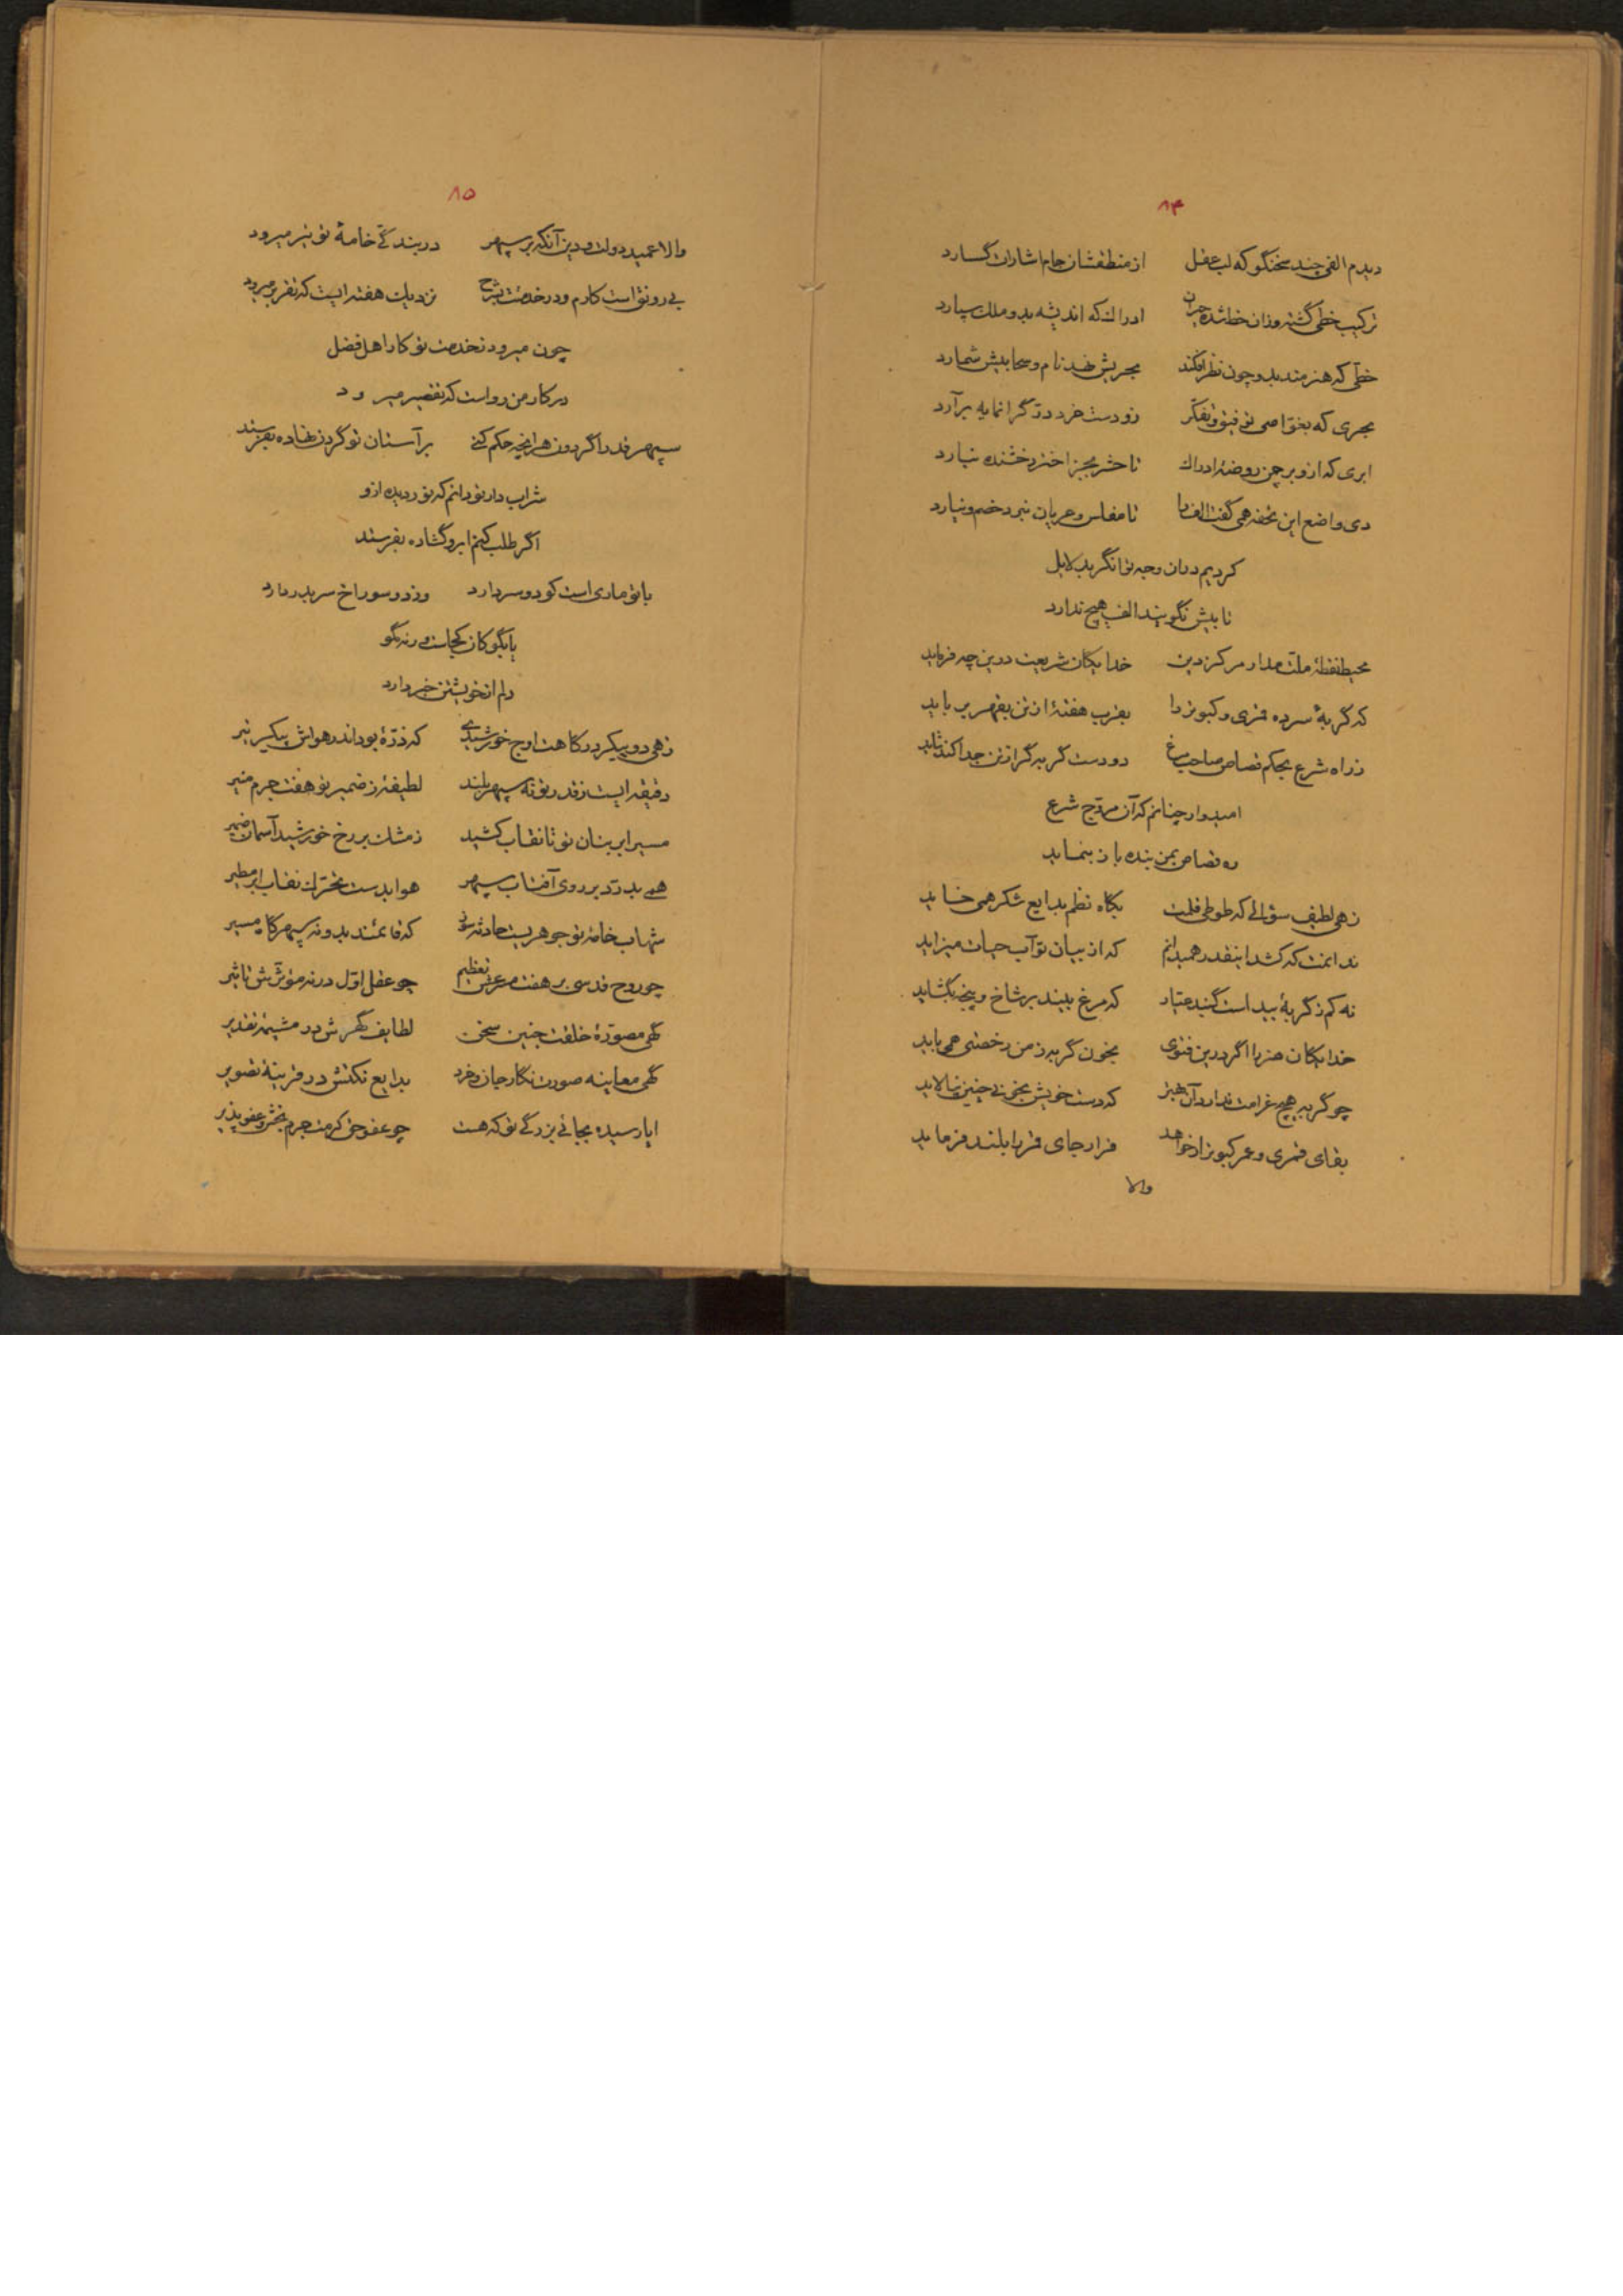 ۸۴
دیدم الفی چند سخنگو که لب عقل از منطقشان جام اشارات گسارد
ترکیب خطی گشته وزان خط شده حیران ادراک که اندیشه بدو ملک سپارد
خطی که هنرمند بدو چون نظر افکند بحریش نهد نام و سحابیش شمارد
بحری که بغواصی توفیق و تفکر زو دست خرد در گرانمایه برآرد
ابری که ازو بر چمن روضهٔ ادراک تا حشر بجز اختر رخشنده نبارد
دی واضع این تحفه همی گفت الف را تا مفلس و عریان نبرد خصم و نیارد
کردیم بدان وجه توانگر بدلایل
تا بیش نگویند الف هیچ ندارد
محیط نقطهٔ ملت مدار مرکز دین خدایگان شریعت درین چه فرماید
که گربهٔ سر ده قمری و کبوتر را بقرب هفتهٔ از تن بقهر برباید
ز راه شرع بحکم قصاص صاحب مرغ دو دست گربه گر از تن جدا کند شاید
امیدوار چنانم که آن مروج شرع
ره قصاص بمن بنده باز بنماید
زهی لطیف سؤالی که طوطی قلمت بگاه نظم بدایع شکر همی خاید
ندانمت که کشد اینقدر همیدانم که از بیان تو آب حیات میزاید
نه کم ز گربهٔ بید است گربهٔ صیاد که مرغ بیند بر شاخ و پنجه نگشاید
خدایگان هنر را اگر درین فتوی بخون گربه ز من رخصتی همی باید
چو گربه هیچ غرامت ندارد آن بهتر که دست خویش بخونی چنین نیالاید
بقای قمری و عمر کبوتر ار خواهد قرار جای قفس را بلند فرماید
والا
۸۵
والا عمید دولت و دین آنکه بر سپهر در بندگی خامهٔ تو تیر میرود
بی رونق است کارم و در خدمتت بشرح نزدیک هفته ایست که تقریر میرود
چون میرود بخدمت تو کار اهل فضل
در کار من رواست که تقصیر میرود
سپهر قدرا گردون هر آنچه حکم کنی بر آستان تو گردن نهاده بفرستد
شراب دار تو دانم که نوردیده ازو
اگر طلب کنم ابرو گشاده بفرستد
با تو ماری است کو دو سر دارد وز دو سوراخ سر بدر دارد
یا بگو کان کجاست ورنه بگو
دلم از خویشتن خبر دارد
زهی دو پیکر درگاهت اوج خورشیدی که ذرهٔ بود اندر هواش پیکر تیر
دقیقه ایست ز قدر تو نه سپهر بلند لطیفهٔ ز ضمیر تو هفت جرم منیر
مسیر ابر بنان تو تا نقاب کشید ز مشک بر رخ خورشید آسمان ضمیر
همی بدرد بر روی آفتاب سپهر هوا بدست تحرک نقاب ابر مطیر
شهاب خامهٔ تو جوهریست حادثه سوز که قائمند بدو نه سپهر گاه مسیر
چو روح قدسی بر هفت عرش تعظیم چو عقل اول در نه مؤثرش تاثیر
گهی مصورهٔ خلقت جنین سخن لطایف گهرش در مشیمهٔ تقدیر
گهی معاینه صورت نگار جان و خرد بدایع نکتش در قرینهٔ تصویر
ایا رسیده بجائی بزرگی تو که هست چو عفو حق کرمت جرم بخش و عفو پذیر